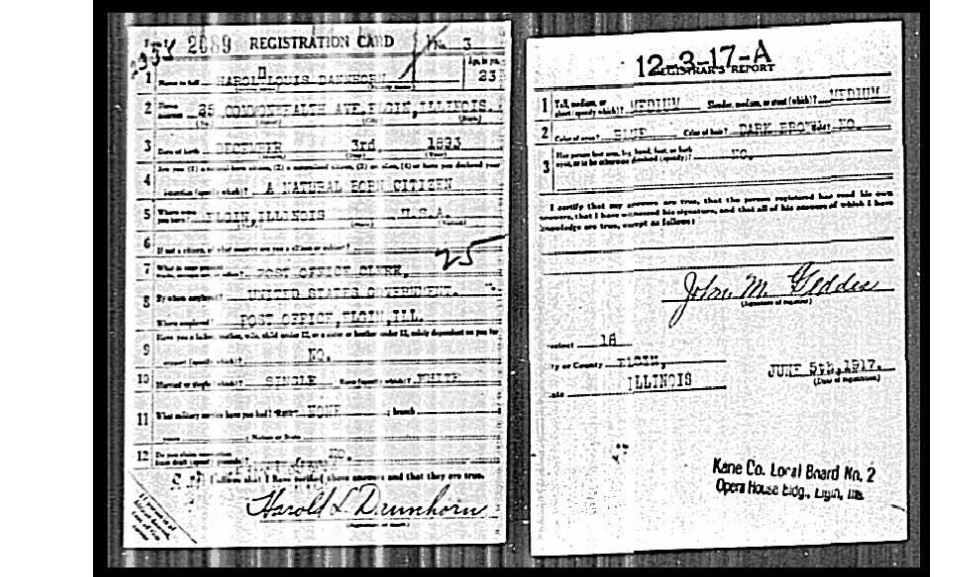 2089 REGISTRATION CARD No. 3
1 Name in full HAROLD LOUIS DANNHORN Age, in yrs. 23
2 Home address 35 COMMONWEALTH AVE, ELGIN, ILLINOIS.
3 Date of birth DECEMBER 3rd, 1893
4 Are you (1) a natural born citizen, (2) a naturalized citizen, (3) an alien, (4) or have you declared your
intention (specify which)? A NATURAL BORN CITIZEN
5 Where were you born? ELGIN, ILLINOIS U.S.A.
6 If not a citizen, of what country are you a citizen or subject?
25
7 What is your present POST OFFICE CLERK,
8 By whom employed? UNITED STATES GOVERNMENT.
Where employed? POST OFFICE, ELGIN, ILL.
9 Have you a father, mother, wife, child under 12, or a sister or brother under 12, solely dependent on you for
support (specify which)? NO.
10 Married or single (which)? SINGLE Race (specify which)? WHITE
11 What military service have you had? Rank NONE ; branch
years ; Nation or State
12 Do you claim exemption from draft (specify grounds)? NO.
I affirm that I have verified above answers and that they are true.
Harold L Dannhorn
12-3-17-A
REGISTRAR'S REPORT
1 Tall, medium, or short (specify which)? MEDIUM Slender, medium, or stout (which)? MEDIUM
2 Color of eyes? BLUE Color of hair? DARK BROWN Bald? NO.
3 Has person lost arm, leg, hand, foot, or both
eyes, or is he otherwise disabled (specify)? NO.
I certify that my answers are true, that the person registered has read his own
answers, that I have witnessed his signature, and that all of his answers of which I have
knowledge are true, except as follows:
John M. Geddes
(Signature of registrar)
Precinct 18
City or County ELGIN,
State ILLINOIS
JUNE 5th, 1917.
(Date of registration)
Kane Co. Local Board No. 2
Opera House Bldg., Elgin, Ills.